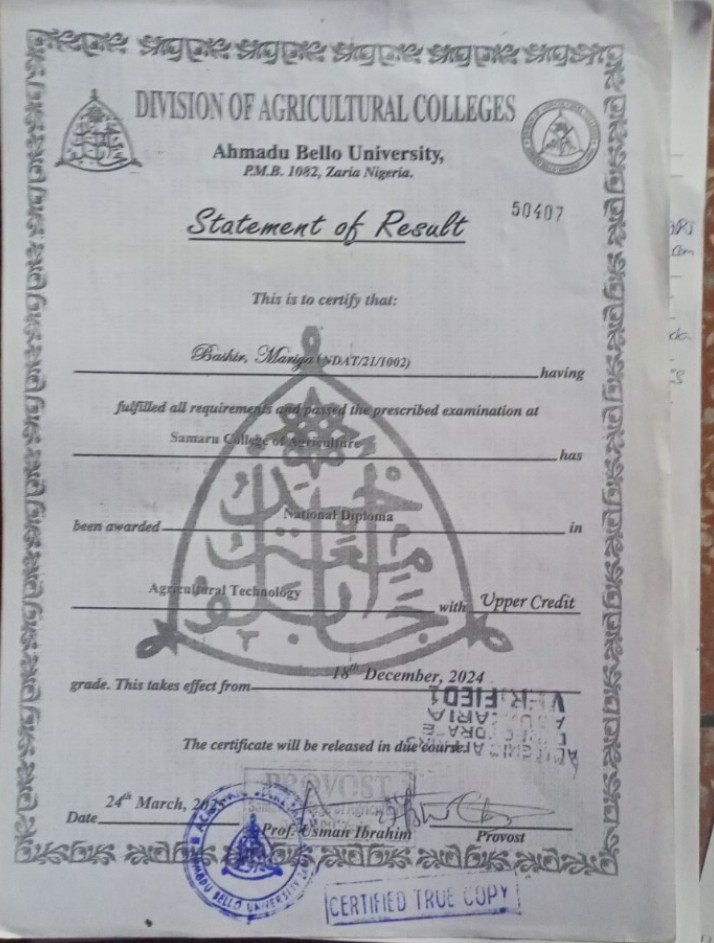 DIVISION OF AGRICULTURAL COLLEGES
Ahmadu Bello University,
P.M.B. 1082, Zaria Nigeria.
50407
Statement of Result
This is to certify that:
Bashir, Mariga (NDAT/21/1002) having
fulfilled all requirements and passed the prescribed examination at
Samaru College of Agriculture has
been awarded National Diploma in
Agricultural Technology with Upper Credit
grade. This takes effect from 18th December, 2024
VERIFIED
The certificate will be released in due course.
PROVOST
Date 24th March,
Prof. Usman Ibrahim Provost
AHMADU BELLO UNIVERSITY
CERTIFIED TRUE COPY